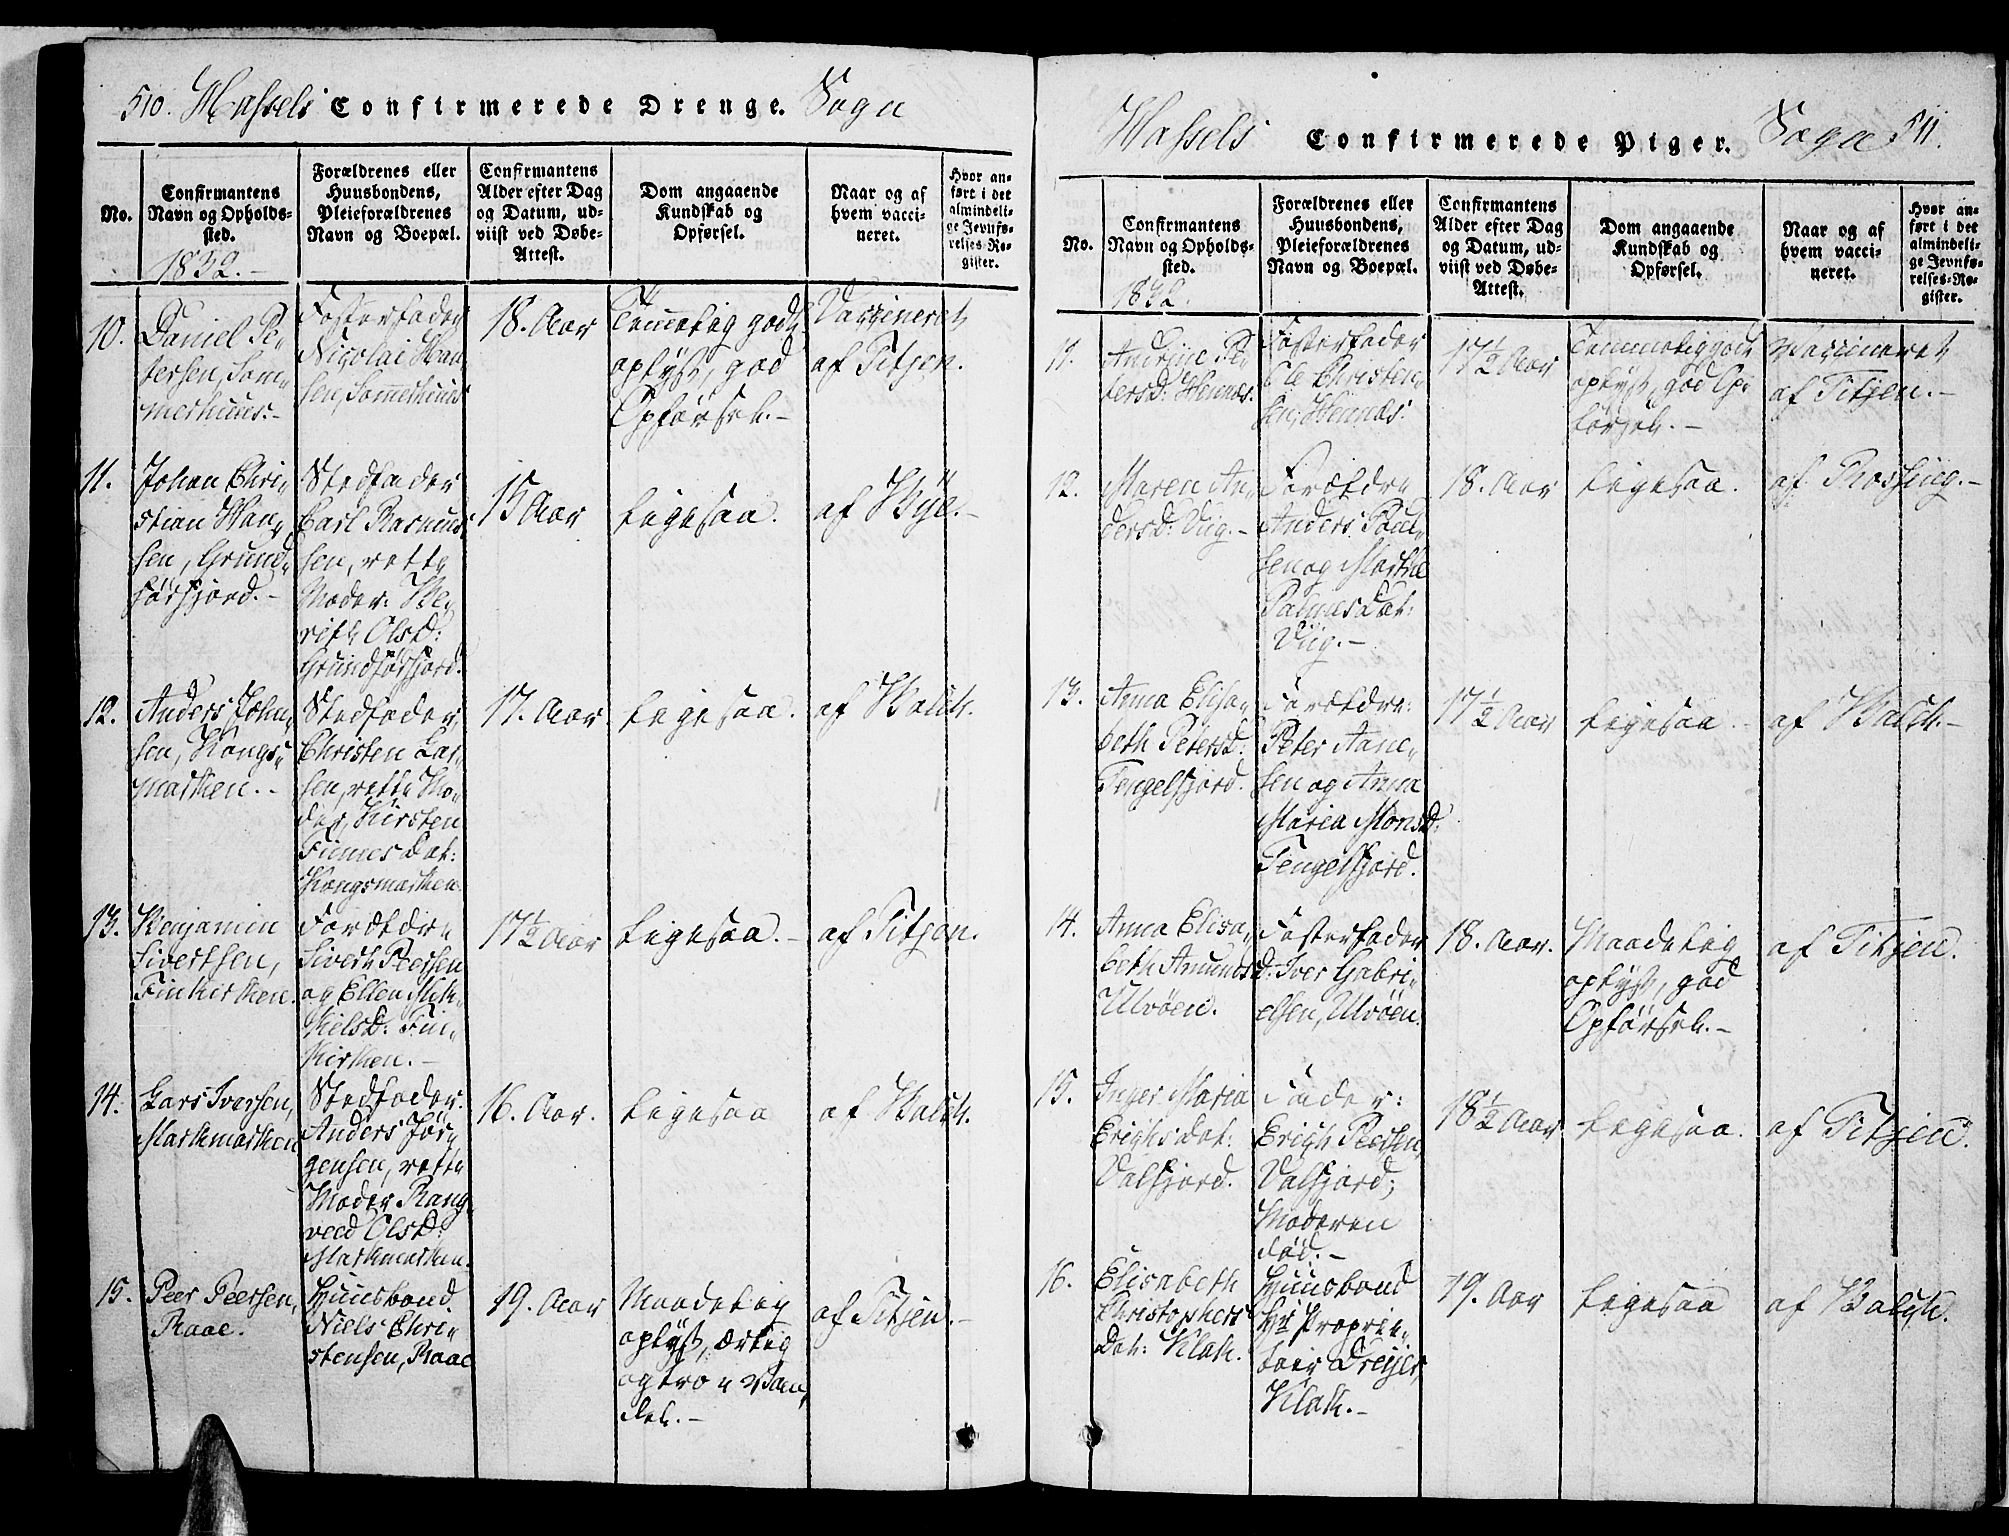 510. Hassels Confirmerede Drenge. Sogn
No.
Confirmantens
Navn og Opholds-
sted.
1832.-
Forældrenes eller
Huusbondens,
Pleieforældrenes
Navn og Boepæl.
Confirmantens
Alder efter Dag
og Datum, ud-
viist ved Døbe-
Attest.
Dom angaaende
Kundskab og
Opførsel.
Naar og af
hvem vacci-
neret.
Hvor an-
ført i det
almindeli-
ge Jevnfø-
relses-Re-
gister.
10.
Daniel Pe-
tersen, Som-
merhuus.-
Fosterfader
Nicolai Han-
sen, Sommerhuus
18. Aar
Temmelig godt
oplyst, god
Opførsel.-
Vaccineret
af Titjen.
11.
Johan Chri-
stian Han-
sen, Grund-
førfjord.-
Stedfader
Carl Rasmus-
sen, rette
Moder: Be-
reth Olsd:
Grundførfjord.
15 Aar
ligesaa.
af Bye.-
12.
Anders John-
sen, Kongs-
marken.-
Stedfader,
Christen Lar-
sen, rette Mo-
der, Kirsten
Finnesdat:
Kongsmarken
17. Aar
ligesaa.
af Balch.
13.
Benjamin
Sivertsen,
Finkirken.
Forældre
Sivert Peersen
og Ellen Mik-
kelsd: Fin-
kirken.-
17½ Aar
ligesaa.-
af Titjen.
14.
Lars Iversen,
Markmarken
Stedfader:
Anders Jør-
gensen, rette
Moder Rang-
veed Olsd:
Markmarken.
16. Aar.
ligesaa
af Balch.
15.
Peer Peersen,
Raae.
Huusbond
Niels Chri-
stensen, Raae
19. Aar
Maadelig
oplyst, ærlig
og troe Van-
del.-
af Titjen.-
Hassels Confirmerede Piger. Sogn 511.
No.
Confirmantens
Navn og Opholds-
sted.
1832.
Forældrenes eller
Huusbondens,
Pleieforældrenes
Navn og Boepæl.
Confirmantens
Alder efter Dag
og Datum, ud-
viist ved Døbe-
Attest.
Dom angaaende
Kundskab og
Opførsel.
Naar og af
hvem vacci-
neret.
Hvor an-
ført i det
almindeli-
ge Jevnfø-
relses-Re-
gister.
11
Andrine Pe-
tersd: Hennæs.
Fosterfader
Ole Christen-
sen, Hennæs.
17½ Aar
Temmelig godt
oplyst, god Op-
førsel.-
Vaccineret
af Titjen.-
12.
Maren An-
dersd: Viig.-
Forældre
Anders Poul-
sen og Marthe
Viig.-
18. Aar
ligesaa.
13.
Anna Elisa-
beth Petersd:
Tengelfjord.
Forældre:
Peter Aane-
sen og Anna
Maria Monsd:
Tengelfjord.
17½ Aar
ligesaa.
af Balch.-
14.
Anna Elisa-
beth Amundsd:
Ulvøen.
Fosterfader
Iver Gabri-
elsen, Ulvøen.
18. Aar.
Maadelig
oplyst, god
Opførsel.-
af Titjen.
15.
Inger Maria
Erichsdat:
Valfjord.
Fader:
Erich Peersen,
Valfjord;
Moderen
død.-
18½ Aar
ligesaa.
af Titjen.
16.
Elisabeth
Christophers
Dat: Klak.
Huusbond
Hr Proprie-
tair Dreyer,
Klak.-
19. Aar
ligesaa
af Balch.